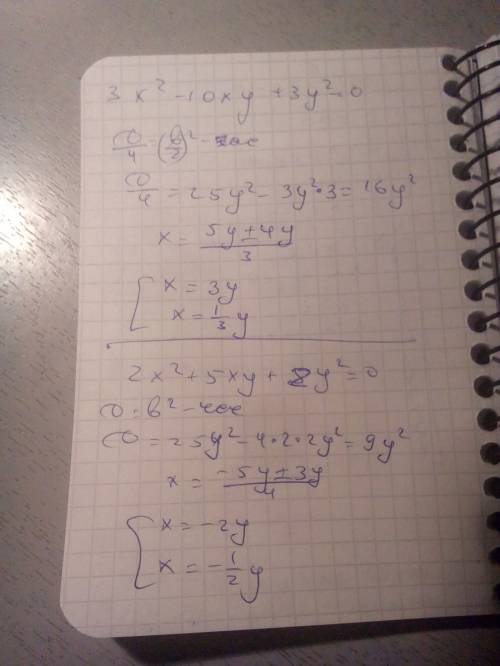 3x² - 10xy + 3y² = 0
D/4 = (b/2)² - ac
D/4 = 25y² - 3y²·3 = 16y²
x = (5y ± 4y)/3
[ x = 3y
x = 1/3 y
2x² + 5xy + 2y² = 0
D = b² - 4ac
D = 25y² - 4·2·2y² = 9y²
x = (-5y ± 3y)/4
[ x = -2y
x = -1/2 y